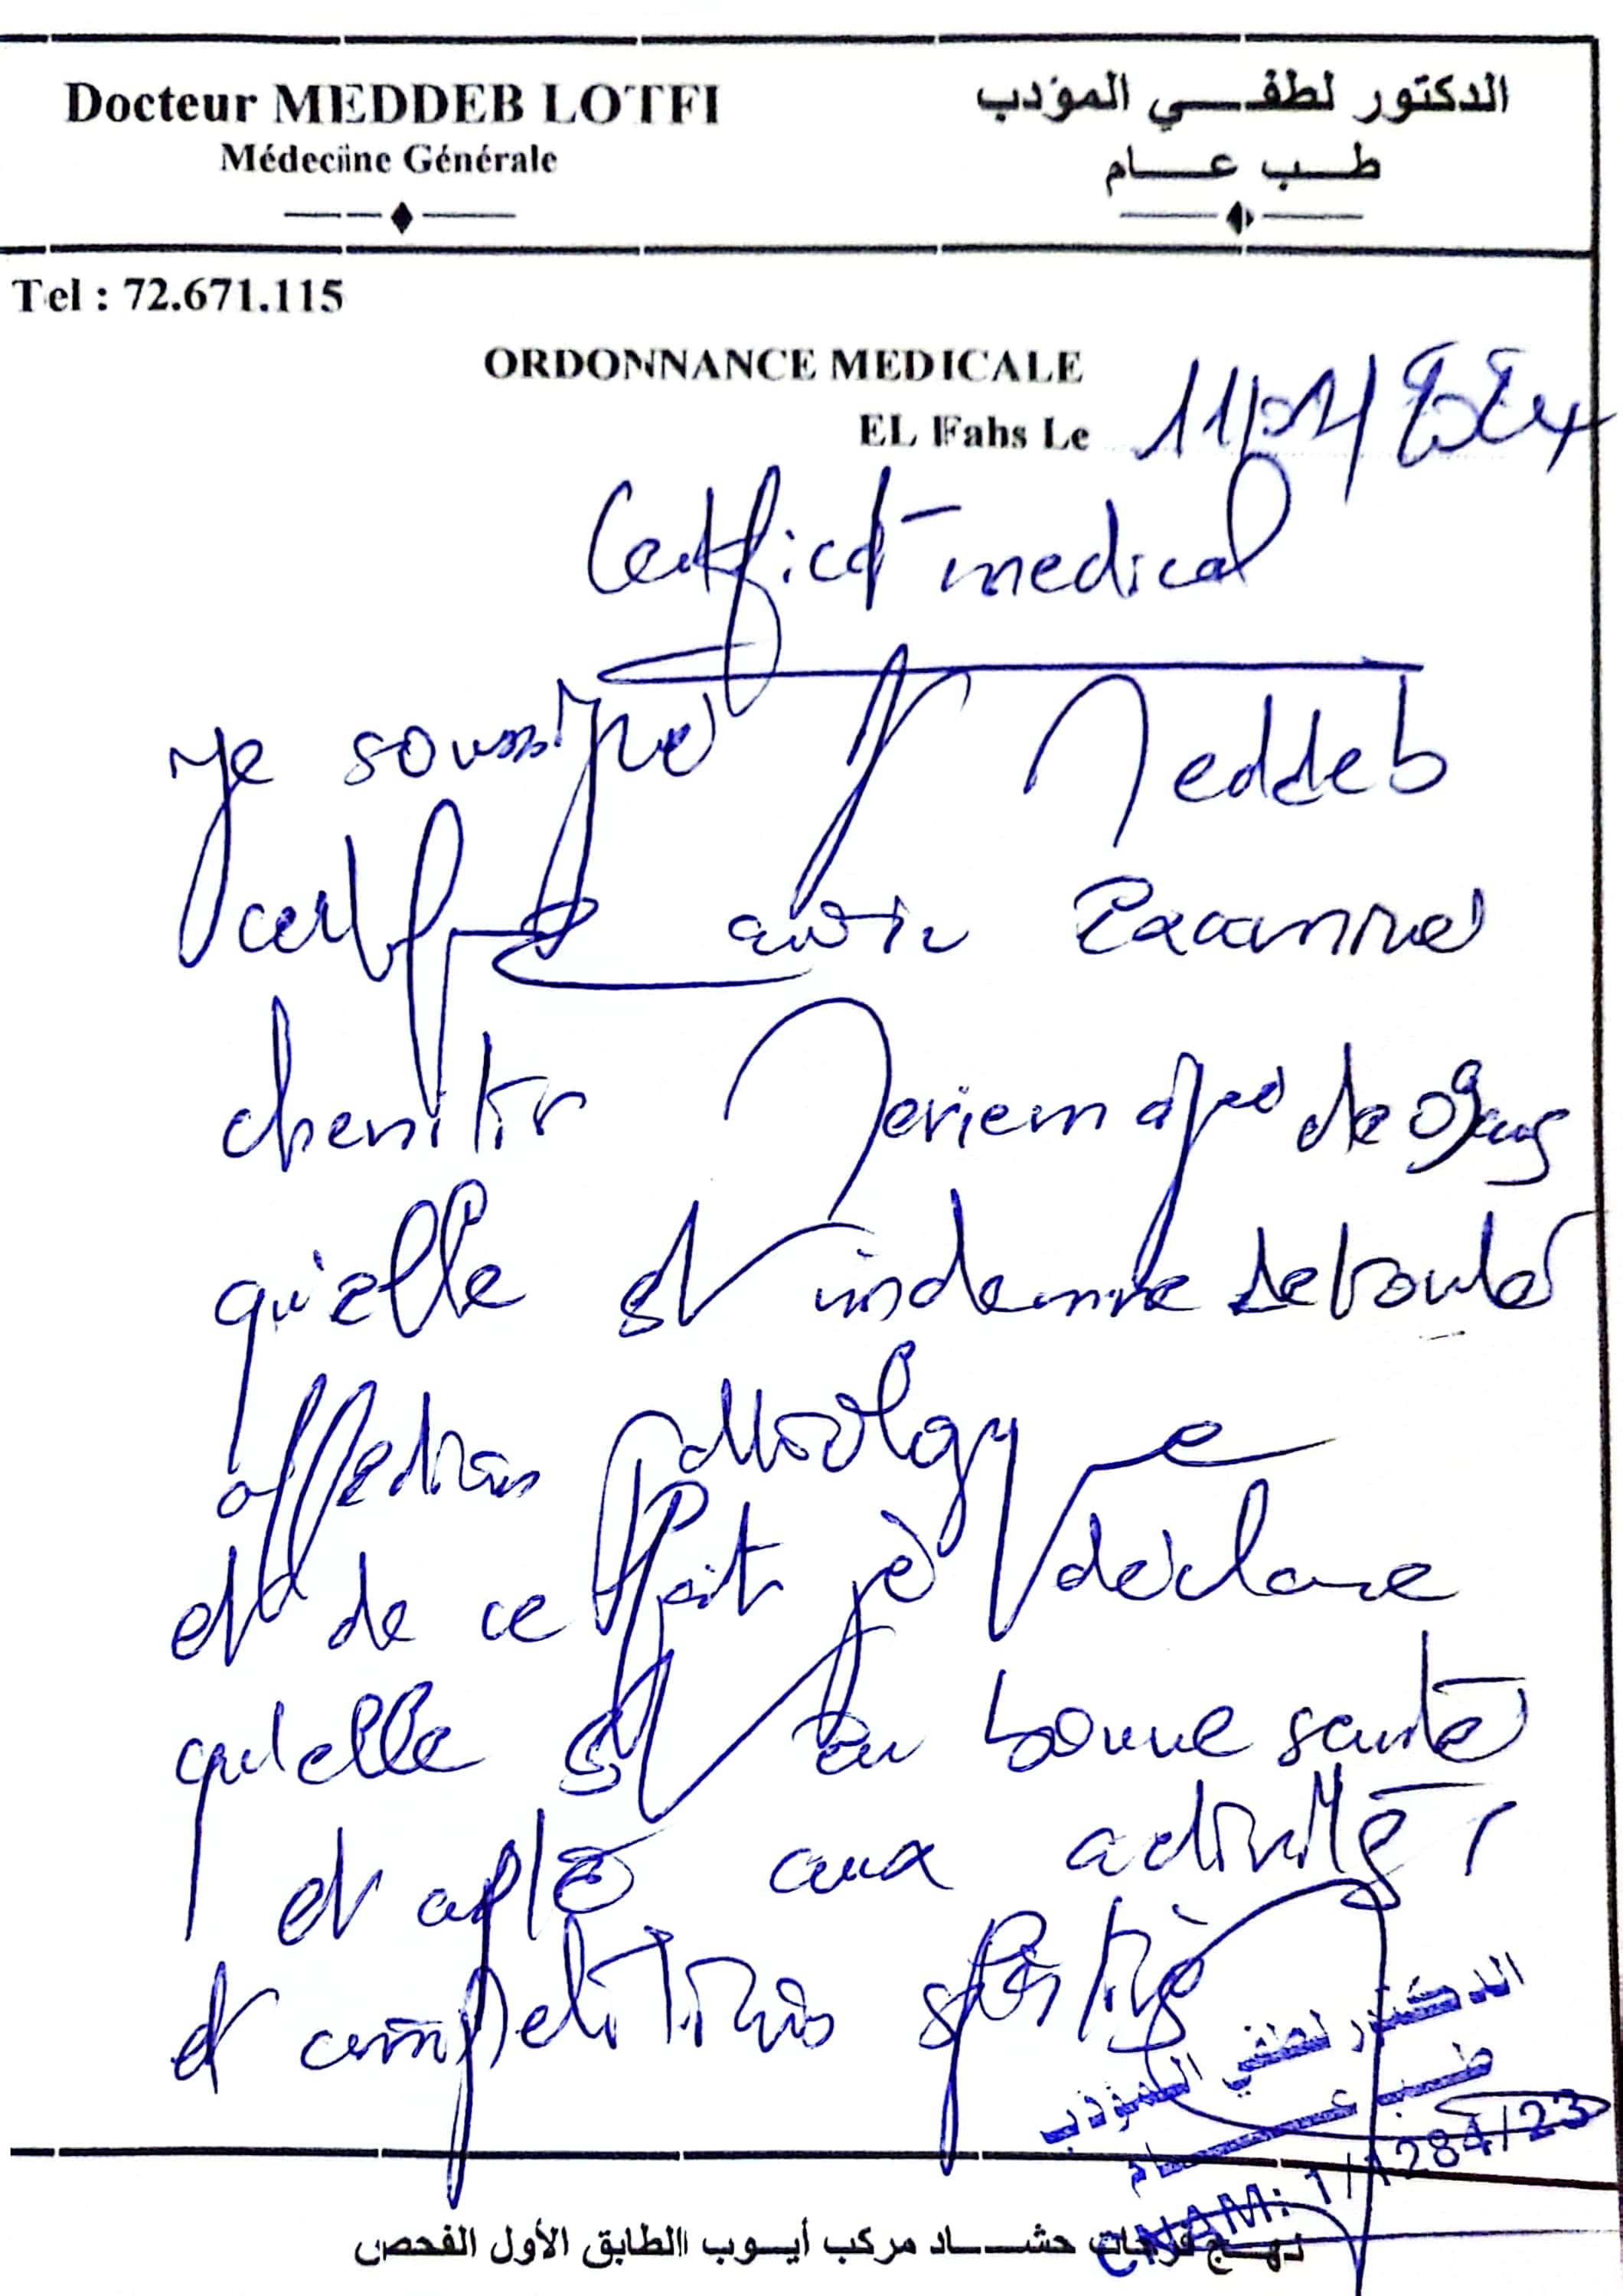 Docteur MEDDEB LOTFI
Médeciine Générale
الدكتور لطفي المؤدب
طب عام
Tel : 72.671.115
ORDONNANCE MEDICALE
EL Fahs Le 11/
Certificat medical
Je soussigné Dr Meddeb
certifie avoir Examiné
Meriem agée de 09 ans
qu'elle est indemne de toute
affection pathologique
et de ce fait je déclare
qu'elle est en bonne santé
et apte aux activités
et compétitions sportives
الدكتور لطفي المؤدب
طب عام
CNAM: 1/1284/23
نهج فرحات حشاد مركب أيوب الطابق الأول الفحص